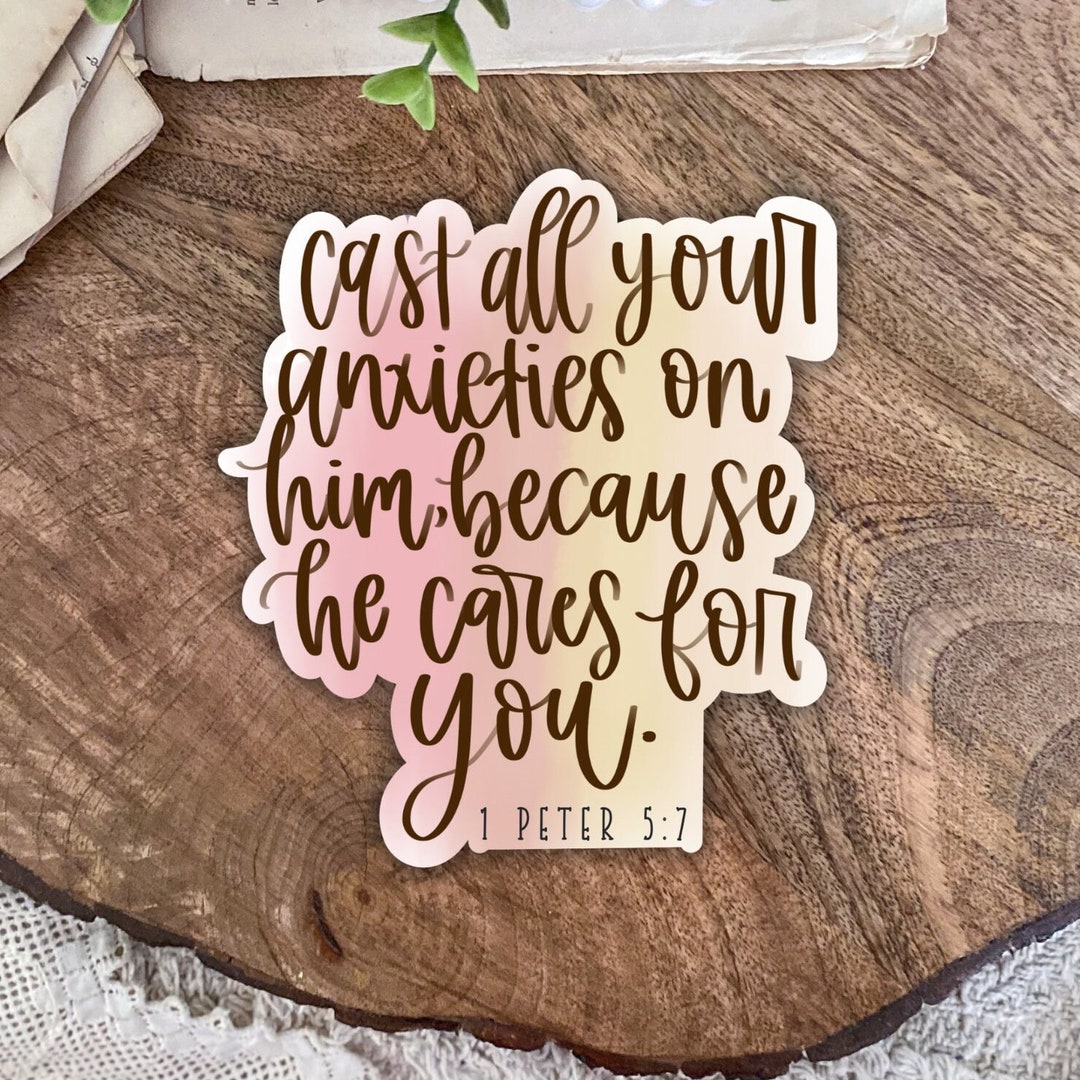 cast all your
anxieties on
him, because
he cares for
you.
1 PETER 5:7